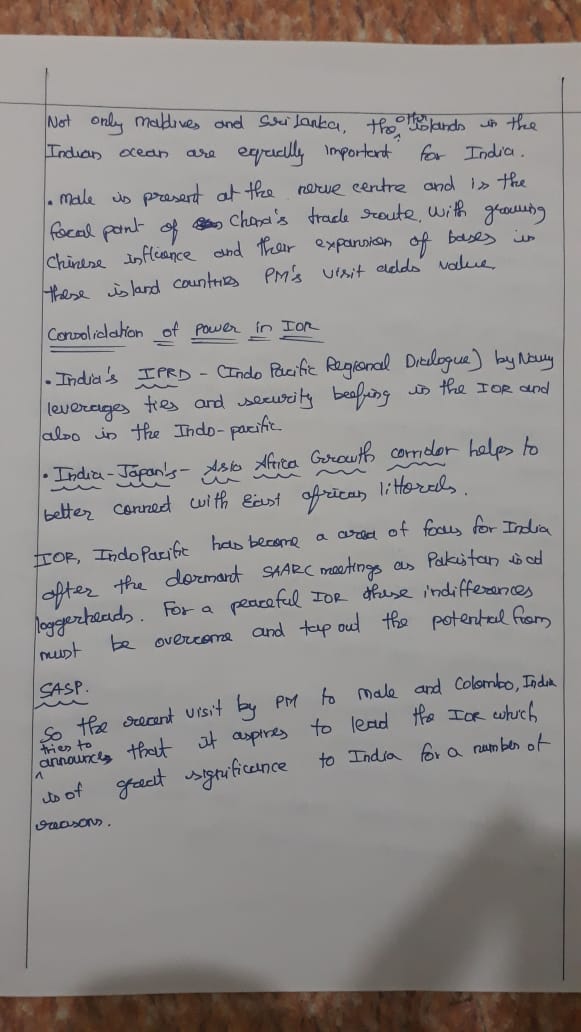 Not only maldives and Sri Lanka, the other islands in the
Indian ocean are equally important for India.
. Male is present at the nerve centre and is the
focal point of China's trade route. With growing
Chinese influence and their expansion of bases in
these island countries PM's visit adds value.
Consolidation of power in IOR
. India's IPRD - (Indo Pacific Regional Dialogue) by Navy
leverages ties and security beefing in the IOR and
also in the Indo-pacific.
. India-Japan's - Asia Africa Growth corridor helps to
better connect with East african littorals.
IOR, IndoPacific has become a area of focus for India
after the dormant SAARC meetings as Pakistan is at
loggerheads. For a peaceful IOR these indifferences
must be overcome and tap out the potential from
SASP.
So the recent visit by PM to male and Colombo, India
tries to
announces that it aspires to lead the IOR which
is of great significance to India for a number of
reasons.